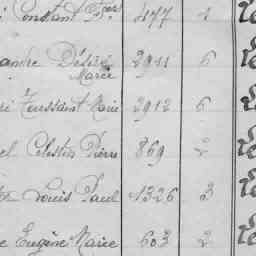 Constant 477 1
andre Désiré 2911 6
Marie
Toussaint Marie 2912 6
Célestin Pierre 869 2
Louis Paul 1326 3
Eugène Marie 603 2